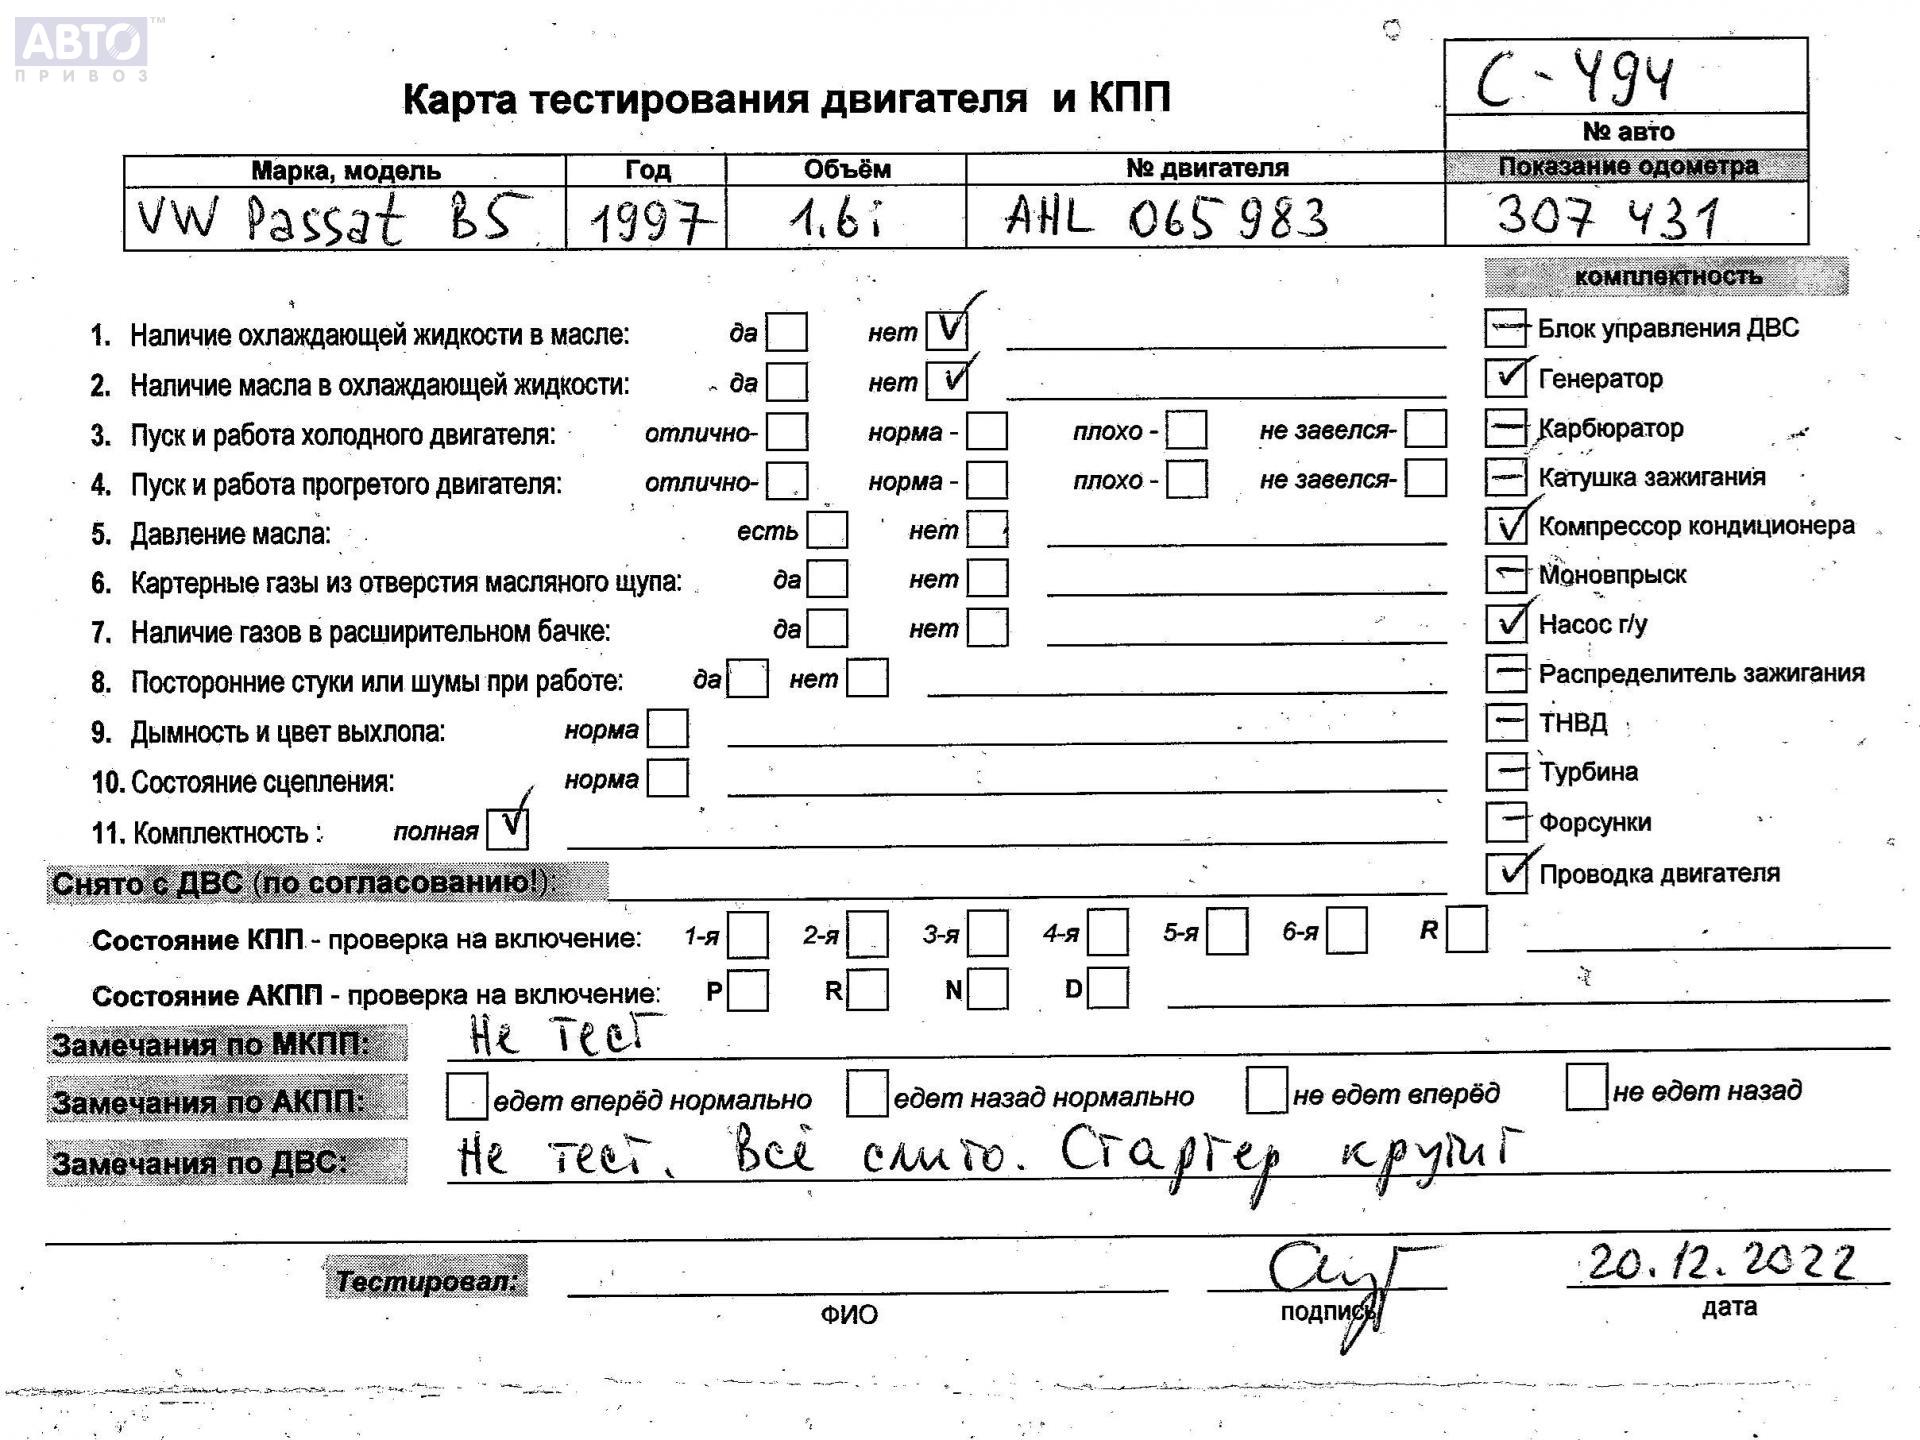 АВТО™
ПРИВОЗ
Карта тестирования двигателя и КПП
С-494
№ авто
Марка, модель Год Объём № двигателя Показание одометра
VW Passat B5 1997 1.6i AHL 065983 307 431
комплектность
1. Наличие охлаждающей жидкости в масле: да нет ✓
2. Наличие масла в охлаждающей жидкости: да нет ✓
3. Пуск и работа холодного двигателя: отлично- норма - плохо - не завелся-
4. Пуск и работа прогретого двигателя: отлично- норма - плохо - не завелся-
5. Давление масла: есть нет
6. Картерные газы из отверстия масляного щупа: да нет
7. Наличие газов в расширительном бачке: да нет
8. Посторонние стуки или шумы при работе: да нет
9. Дымность и цвет выхлопа: норма
10. Состояние сцепления: норма
11. Комплектность : полная ✓
— Блок управления ДВС
✓ Генератор
— Карбюратор
— Катушка зажигания
✓ Компрессор кондиционера
— Моновпрыск
✓ Насос г/у
— Распределитель зажигания
— ТНВД
— Турбина
— Форсунки
✓ Проводка двигателя
Снято с ДВС (по согласованию!):
Состояние КПП - проверка на включение: 1-я 2-я 3-я 4-я 5-я 6-я R
Состояние АКПП - проверка на включение: P R N D
Замечания по МКПП: Не тест
Замечания по АКПП: едет вперёд нормально едет назад нормально не едет вперёд не едет назад
Замечания по ДВС: Не тест. Всё слито. Стартер крутит
Тестировал: 20.12.2022
ФИО подпись дата